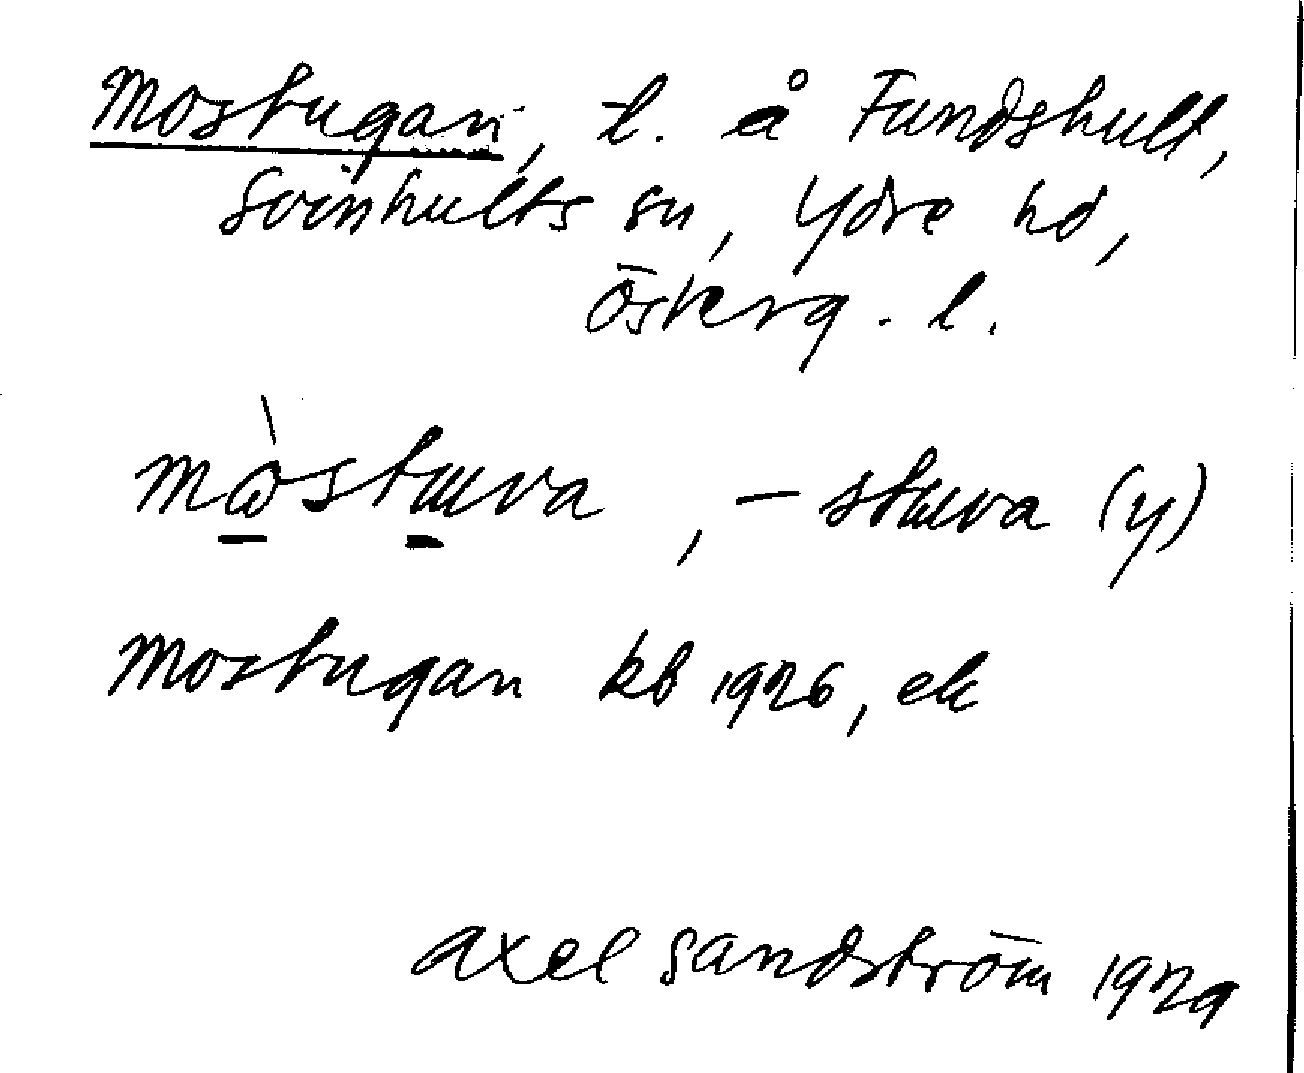 Mostugan, t. å Fundshult,
Svinhults sn, Ydre hd,
Österg. l.
mòstuva, – stuva (y)
Mostugan kb 1926, ek
Axel Sandström 1929